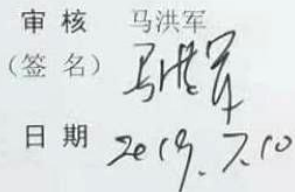 审 核 马洪军
（签 名） 马洪军
日 期 2019.7.10